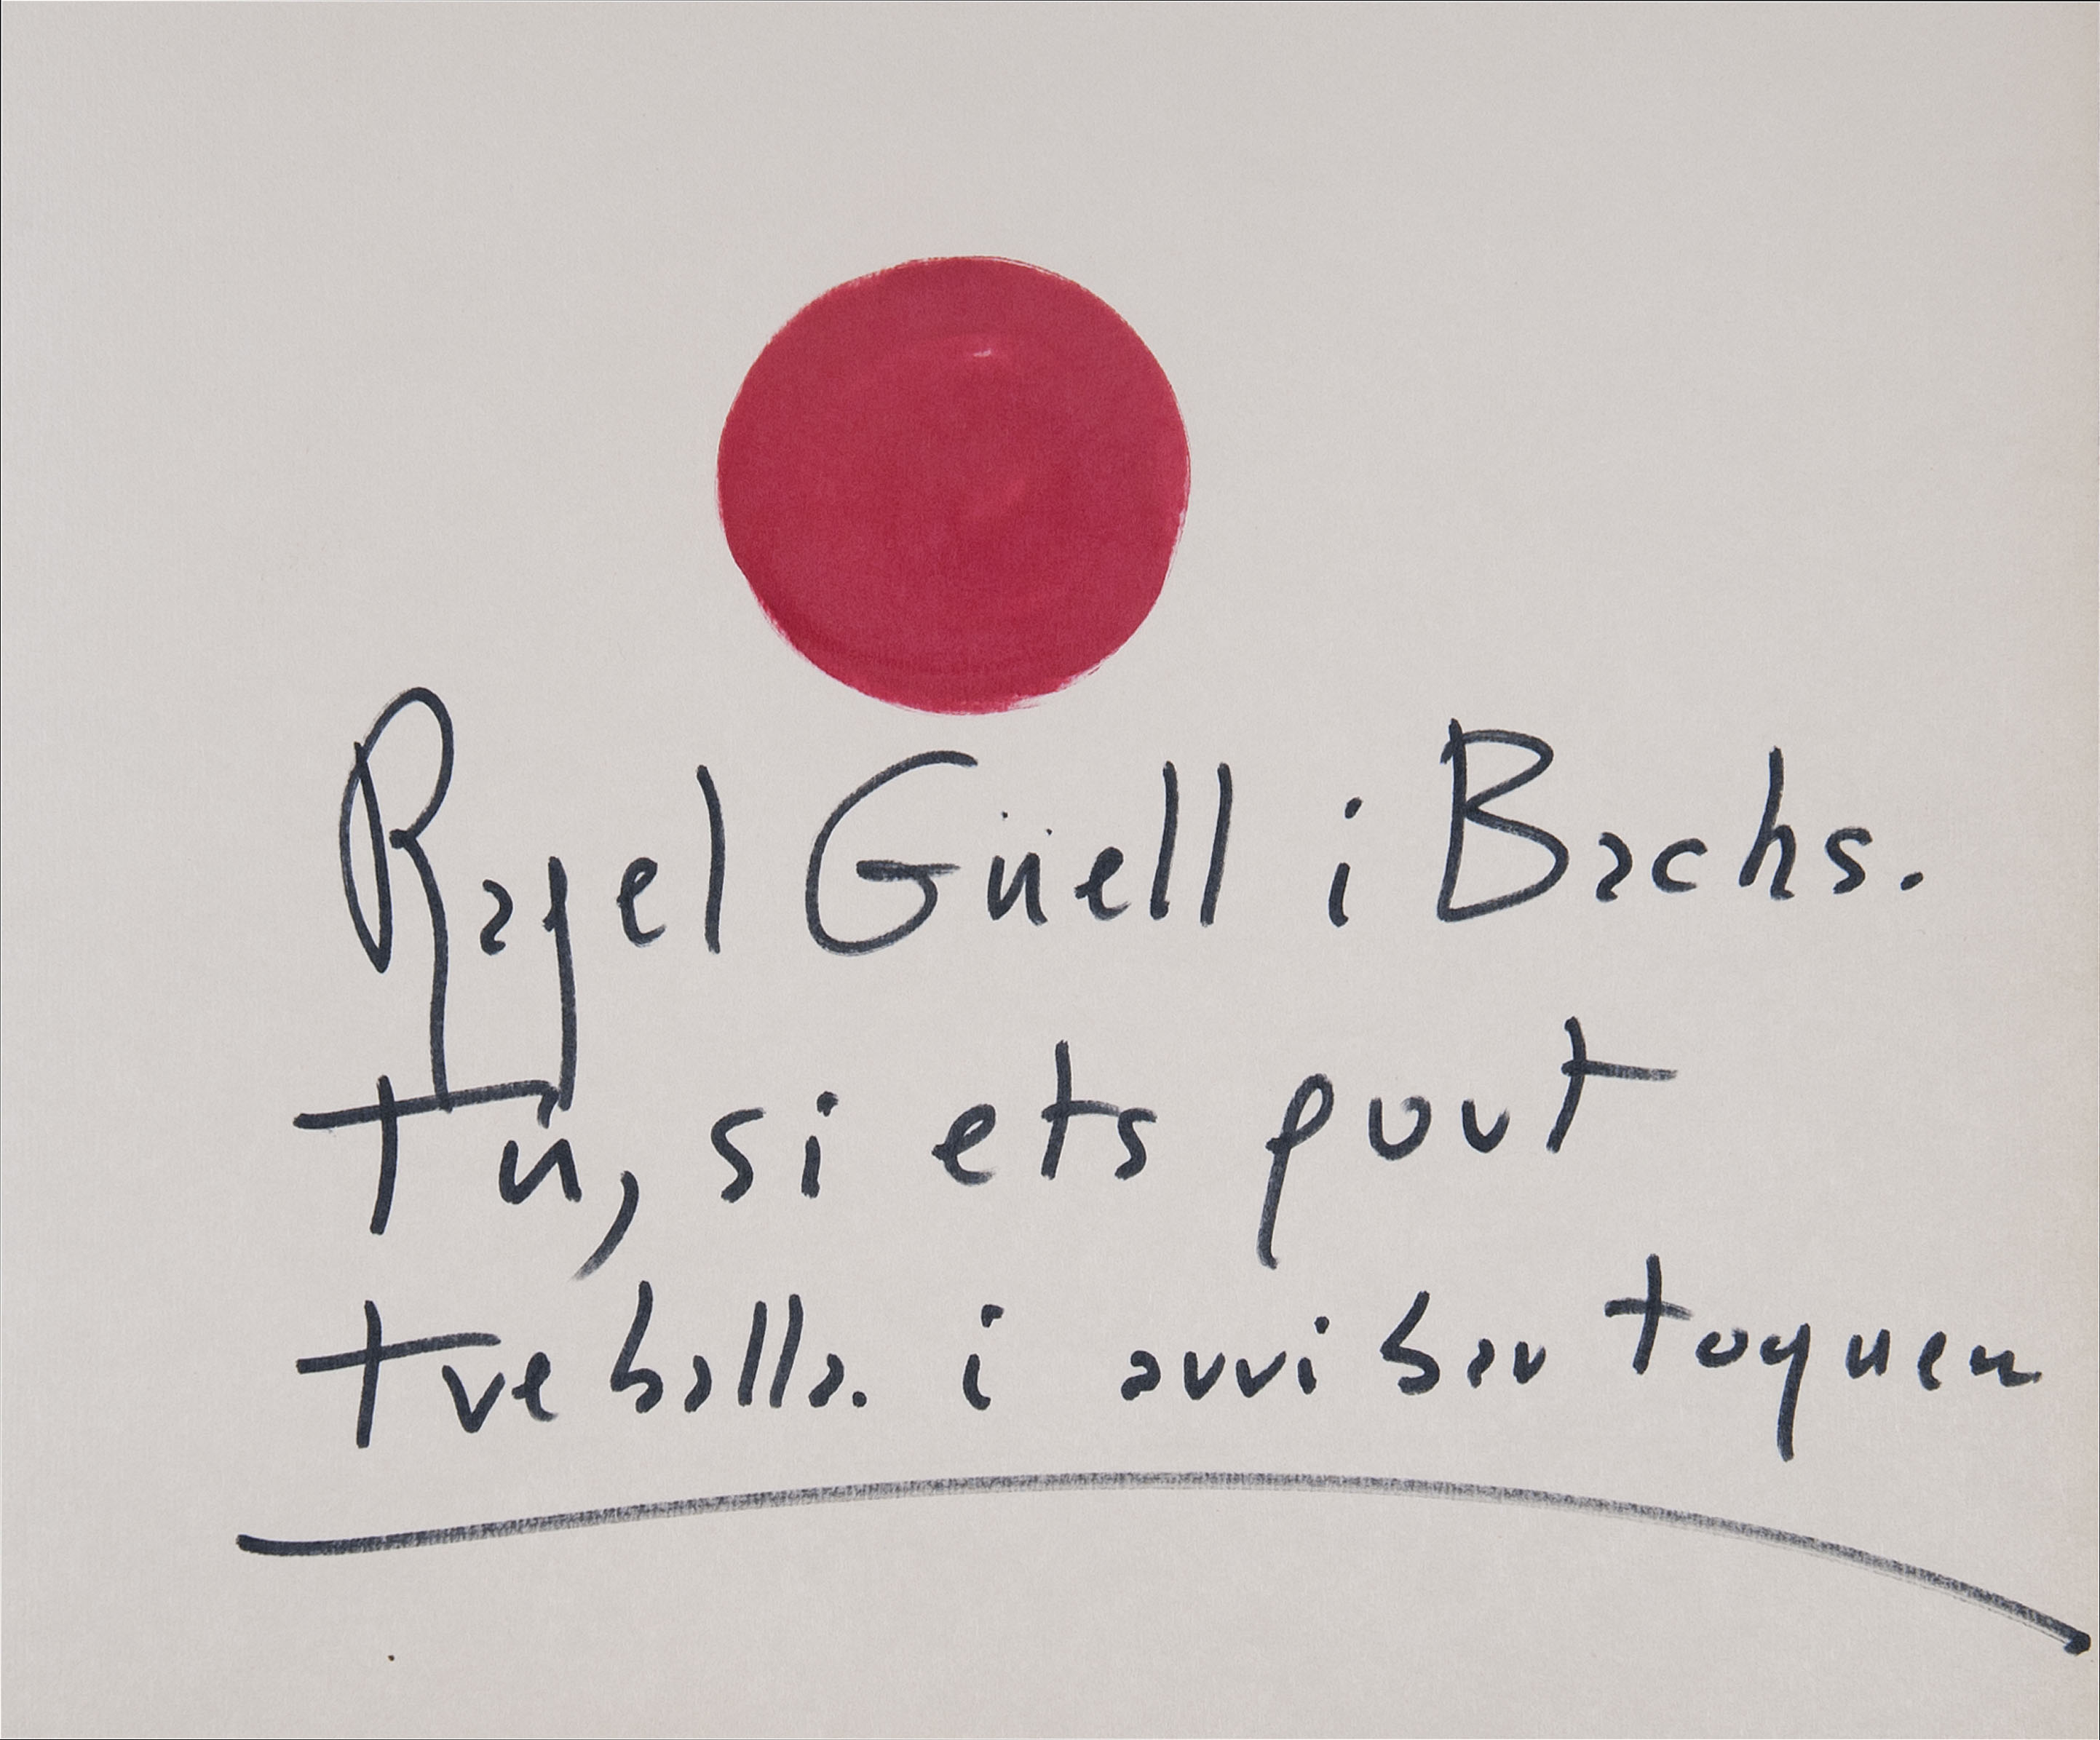 Rafel Güell i Bachs.
Tú, si ets port
treballa. i arribar toquen